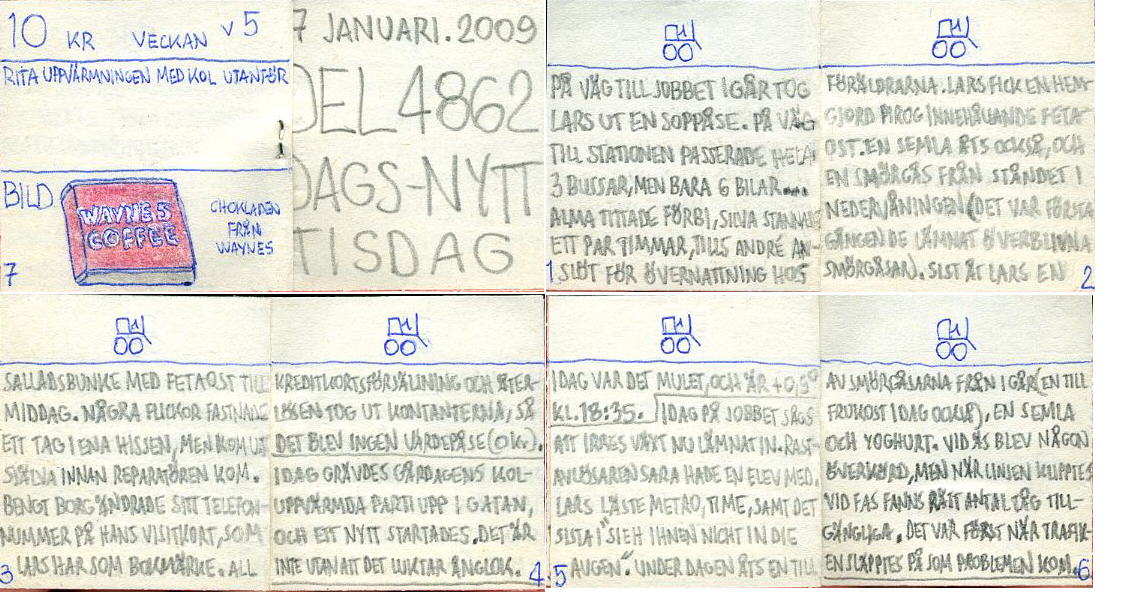 10 KR VECKAN V 5
RITA UPPVÄRMNINGEN MED KOL UTANFÖR
BILD
WAYNES
COFFEE
CHOKLADEN
FRÅN
WAYNES
7
7 JANUARI. 2009
DEL 4862
DAGS-NYTT
TISDAG
PÅ VÄG TILL JOBBET IGÅR TOG
LARS UT EN SOPPÅSE. PÅ VÄG
TILL STATIONEN PASSERADE HELA
3 BUSSAR, MEN BARA 6 BILAR....
ALMA TITTADE FÖRBI, SILVA STANNADE
ETT PAR TIMMAR, TILLS ANDRÉ AN-
SLÖT FÖR ÖVERNATTNING HOS
1
FÖRÄLDRARNA. LARS FICK EN HEM-
GJORD PIROG INNEHÅLLANDE FETA-
OST. EN SEMLA ÄTS OCKSÅ, OCH
EN SMÖRGÅS FRÅN STÅNDET I
NEDERVÅNINGEN (DET VAR FÖRSTA
GÅNGEN DE LÄMNAT ÖVERBLIVNA
SMÖRGÅSAR). SIST ÅT LARS EN
2
SALLADSBUNKE MED FETAOST TILL
MIDDAG. NÅGRA FLICKOR FASTNADE
ETT TAG I ENA HISSEN, MEN KOM UT
SJÄLVA INNAN REPARATÖREN KOM.
BENGT BORG ÄNDRADE SITT TELEFON-
NUMMER PÅ HANS VISITKORT, SOM
LARS HAR SOM BOKMÄRKE. ALL
3
KREDITKORTSFÖRSÄLJNING OCH ÅTER-
LÖSEN TOG UT KONTANTERNA, SÅ
DET BLEV INGEN VÄRDEPÅSE (0 kr).
IDAG GRÄVDES GÅRDAGENS KOL-
UPPVÄRMDA PARTI UPP I GATAN,
OCH ETT NYTT STARTADES. DET ÄR
INTE UTAN ATT DET LUKTAR ÅNGLOK.
4
IDAG VAR DET MULET, OCH ÄR +0,5°
KL. 18:35. IDAG PÅ JOBBET SÅGS
ATT IRRES VÄXT NU LÄMNAT IN. RAST-
AVLÖSAREN SARA HADE EN ELEV MED.
LARS LÄSTE METRO, TIME, SAMT DET
SISTA I "SIEH IHNEN NICHT IN DIE
AUGEN". UNDER DAGEN ÄTS EN TILL
5
AV SMÖRGÅSARNA FRÅN IGÅR (EN TILL
FRUKOST IDAG OCKSÅ), EN SEMLA
OCH YOGHURT. VID ÅS BLEV NÅGON
ÖVERKÖRD, MEN NÄR LINJEN KLIPPTES
VID FAS FANNS RÄTT ANTAL TÅG TILL-
GÄNGLIGA. DET VAR FÖRST NÄR TRAFIK-
EN SLÄPPTES PÅ SOM PROBLEMEN KOM.
6